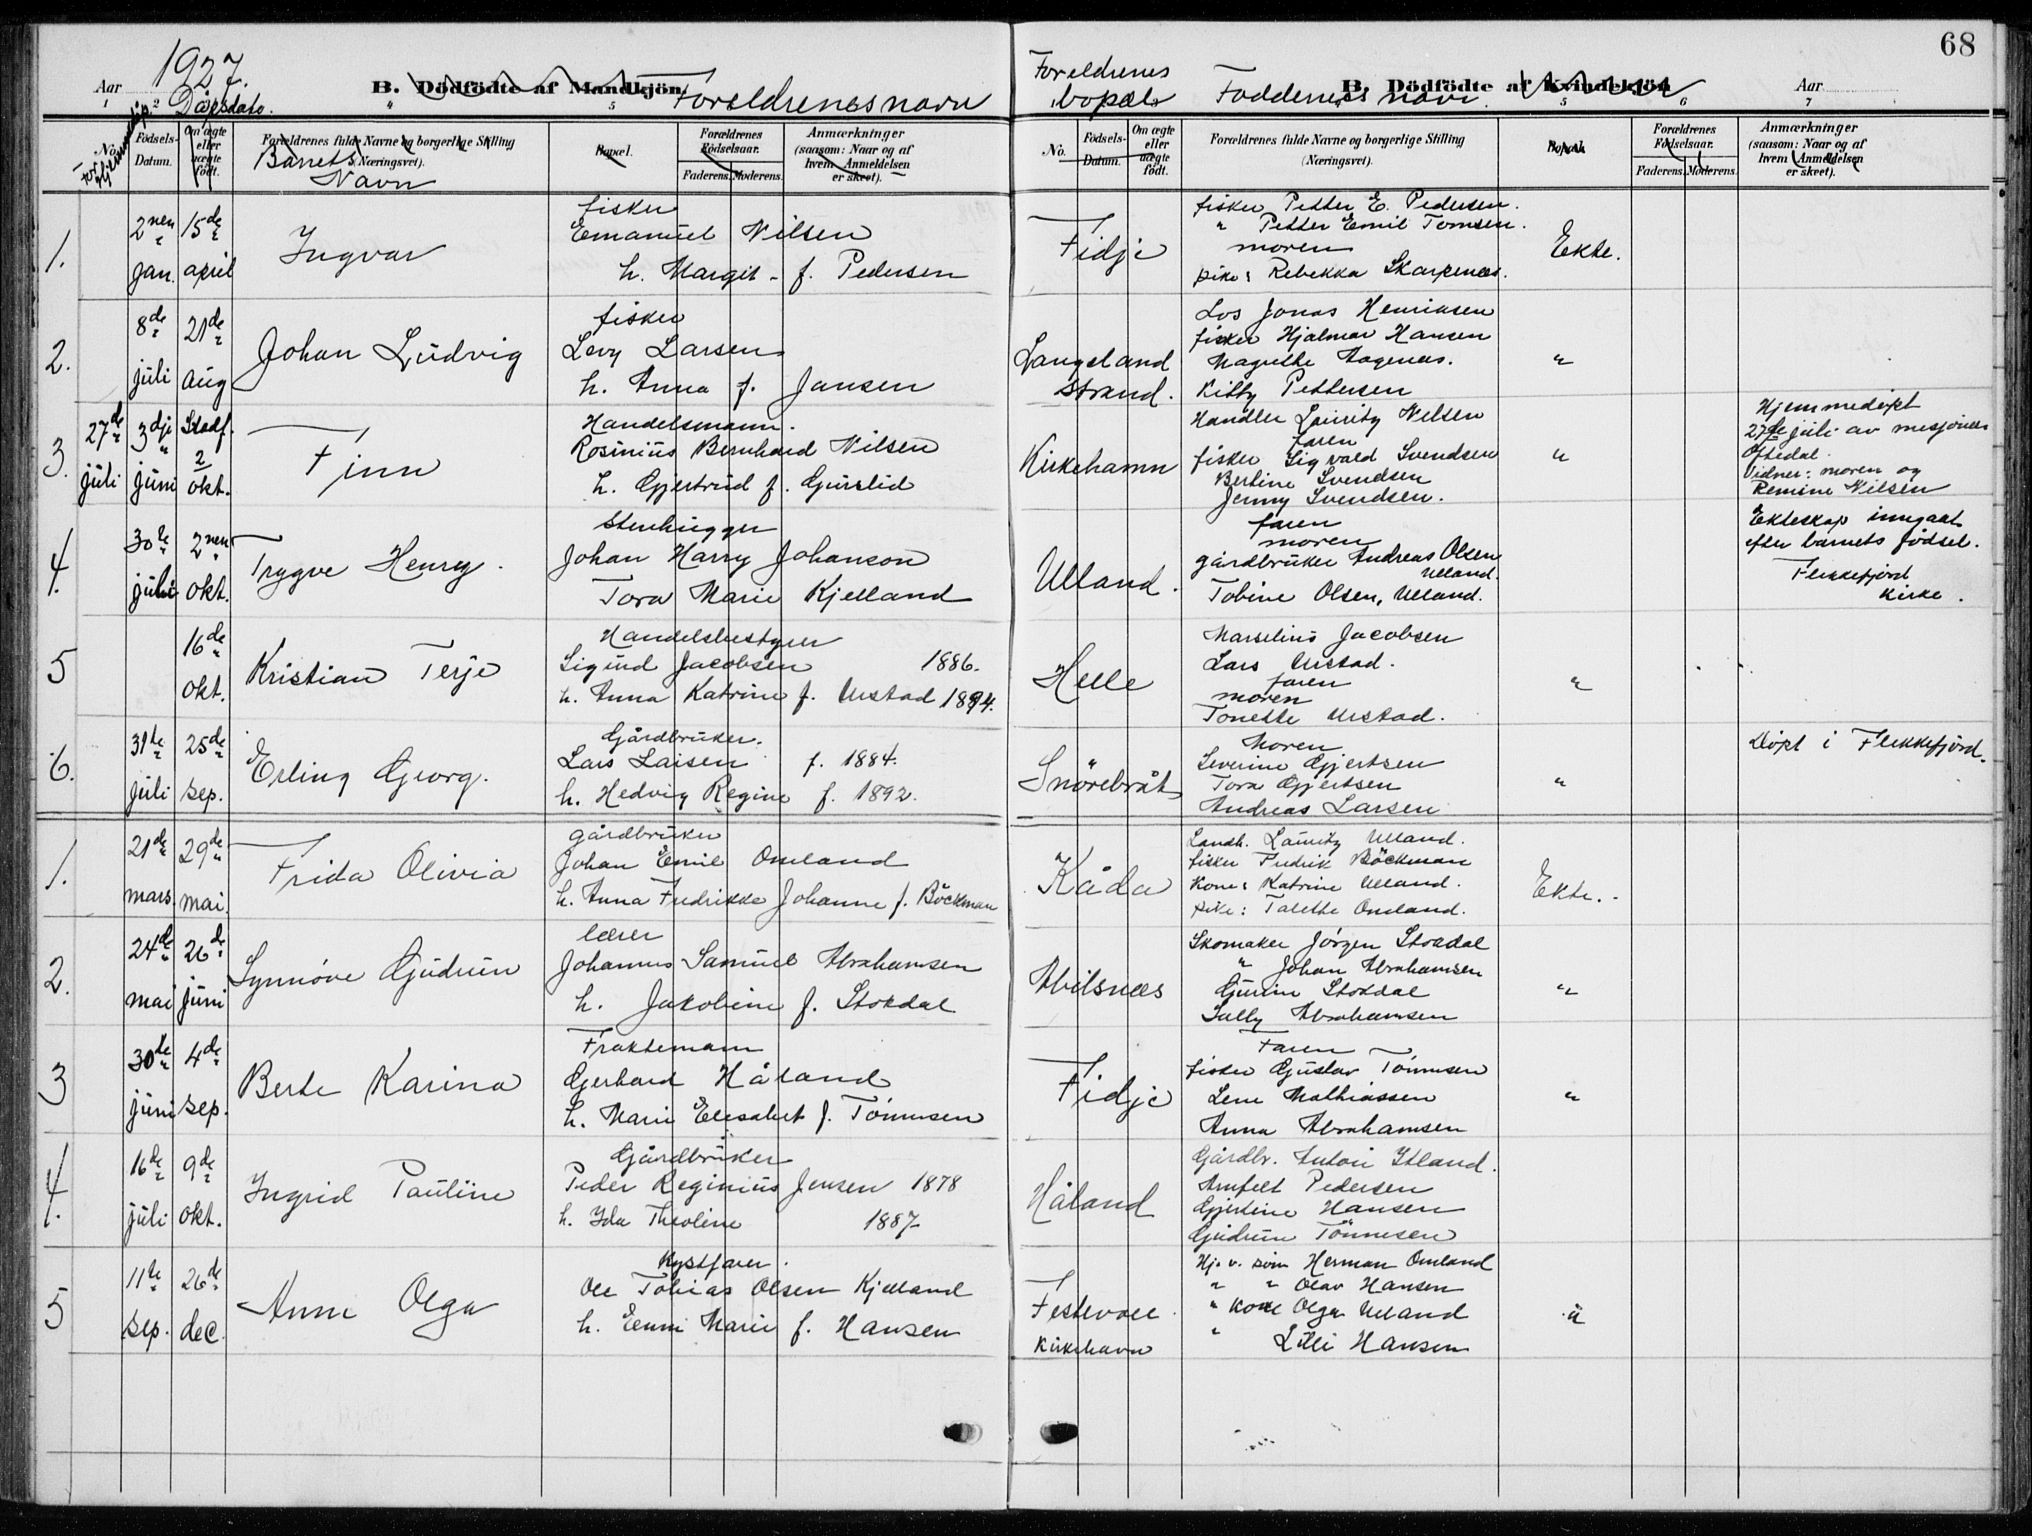 1927.
Aar
1
2
B. Dödfödte af Mandkjön
Foreldrenes navn
Dåpsdato.
For hjemmedåp.
No.
Födsels-Datum.
Om ægte eller uægte födt.
Forældrenes fulde Navne og borgerlige Stilling
(Næringsvei).
Barnets Navn
Bopæl.
5
Forældrenes Födselsaar.
Faderens. Moderens.
Anmærkninger
(saasom: Naar og af hvem Anmeldelsen er skeet).
1. 2nen jan. 15de april Ingvar
fisker
Emanuel Nilsen
h. Margit - f. Pedersen
2. 8de juli 21de aug Johan Ludvig
fisker
Levy Larsen
h. Anna f. Jansen
3. 27de juli 3dje juni Stadf. 2 okt. Finn
Handelsmann.
Rosinius Bernhard Nilsen
h. Gjertrud f. Gurslid
4. 30te juli 2nen okt. Trygve Henry.
Stenhugger
Johan Harry Johanson
Tora Marie Kjelland
5 16de okt. Kristian Terje
Handelsbestyrer
Sigurd Jacobsen 1886.
h. Anna Katrine f. Urstad 1894.
6. 31te juli 25de sep. Erling Georg.
Gårdbruker.
Lars Larsen f. 1884.
h. Hedvig Regine f. 1892.
1. 21de mars. 29de mai. Frida Olivia
gårdbruker
Johan Emil Omland
h. Anna Fredrikke Johanne f. Böckman
2. 24de mai 26de juni Synnöve Gudrun
lærer
Johannes Samuel Abrahamsen
h. Jakobine f. Stokdal
3 30te juni 4de sep. Berte Karina
Fraktemann
Gerhard Håland
h. Marie Elisabet f. Tönnesen
4. 16de juli 9de okt. Ingrid Pauline
Gårdbruker
Peder Reginius Jensen 1878
h. Ida Theoline 1887
5 11te sep. 26de dec. Anne Olga
Kystfarer.
Ole Tobias Olsen Kjelland
h. Enni Marie f. Hansen
68
Foreldrenes bopæl
Faddernes navn.
B. Dödfödte af Kvindekjön
Aar
7
5
6
No.
Födsels-Datum.
Om ægte eller uægte födt.
Forældrenes fulde Navne og borgerlige Stilling
(Næringsvei).
Bopæl.
Forældrenes Födselsaar.
Faderens. Moderens.
Anmærkninger
(saasom: Naar og af hvem Anmeldelsen er skeet).
Fidje
fisker Petter E. Pedersen.
" Petter Emil Tomsen.
moren
pike: Rebekka Skarpenæs.
Ekte.
Langeland strand.
Los Jonas Henriksen
fisker Hjalmar Hansen
Magrethe Aagenæs.
Kitty Pettersen
"
Kirkehamn
Handler Lauritz Nilsen
faren
fisker Sigvald Svendsen
Berline Svendsen
Jenny Svendsen.
"
Hjemmedöpt
27de juli av mesjonær
Oftedal.
Vidner: moren og
Remine Nilsen
Ulland.
faren
moren
gårdbruker Andreas Olsen
Ulland.
Tobine Olsen, Ulland.
Ekteskap inngaat
efter barnets födsel.
Flekkefjord
Kirke.
Helle
Marselius Jacobsen
Lars Urstad.
faren
moren
Tonette Urstad.
"
Snörebråt
Moren
Severine Gjertsen
Tora Gjertsen
Andreas Larsen
"
Döpt i Flekkefjord.
Kåda
Landh. Lauritz Ulland.
fisker Fredrik Böckman
Kone: Katrine Ulland.
pike: Talette Omland.
Ekte.
Abilsnæs
Skomaker Jörgen Stokdal
" Johan Abrahamsen
Gurine Stokdal
Sally Abrahamsen
"
Fidje
Faren
fisker Gustav Tönnesen
Lene Mathiassen
Anna Abrahamsen
"
Håland
Gårdbr. Anton Itland.
Arnfelt Pedersen
Gjertine Hansen
Gudrun Tönnesen
Festevoll
Kirkehavn
Hj. v. sön Herman Omland
" " Olav Hansen
" Kone Olga Ulland
" Lilli Hansen
"